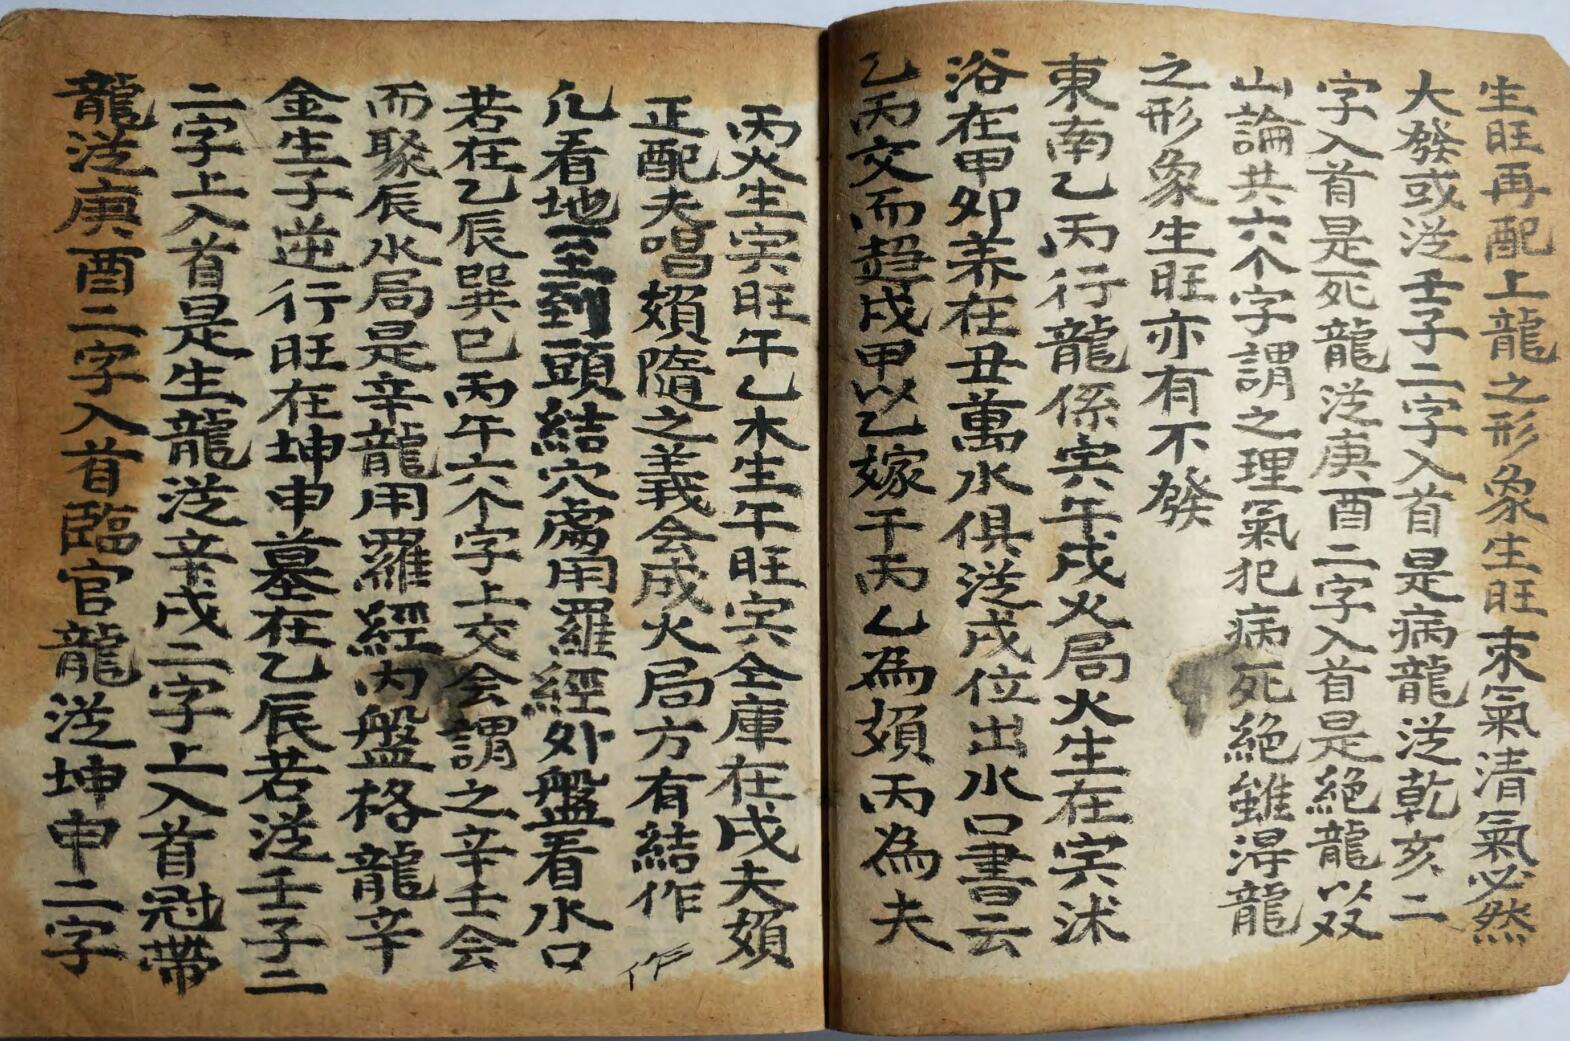 生旺再配上龍之形象生旺朿氣清氣必然
大發或泛壬子二字入首是病龍泛乾亥二
字入首是死龍泛庚酉二字入首是絕龍以双
山論共六个字謂之理氣犯病死絕雖淂龍
之形象生旺亦有不發
東南乙丙行龍係寅午戌火局火生在寅沭
浴在甲卯养在丑萬水俱泛戌位出水口書云
乙丙交而趋戌甲以乙嫁干丙乙為㛐丙為夫
丙火生寅旺午乙木生午旺寅仝庫在戌夫㛐
正配夫唱㛐隨之義会成火局方有結作
作
凢看地至到頭結穴處用羅經外盤看水口
若在乙辰巽巳丙午六个字上交会謂之辛壬会
而聚辰水局是辛龍用羅經内盤格龍辛
金生子逆行旺在坤申墓在乙辰若泛壬子二
二字上入首是生龍泛辛戌二字上入首冠帶
龍泛庚酉二字入首臨官龍泛坤申二字